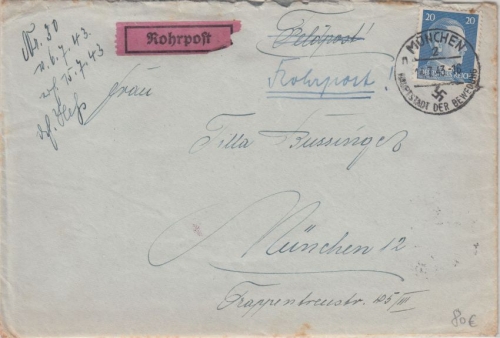 Nr. 30
v. 6.7.43.
15.7.43
Rohrpost
Feldpost!
Rohrpost!
20 20
MÜNCHEN
2
.7.43-16
HAUPTSTADT DER BEWEGUNG
REICH
Frau
Tilla Bussinger
München 12
Trappentreustr. 25/III
80€